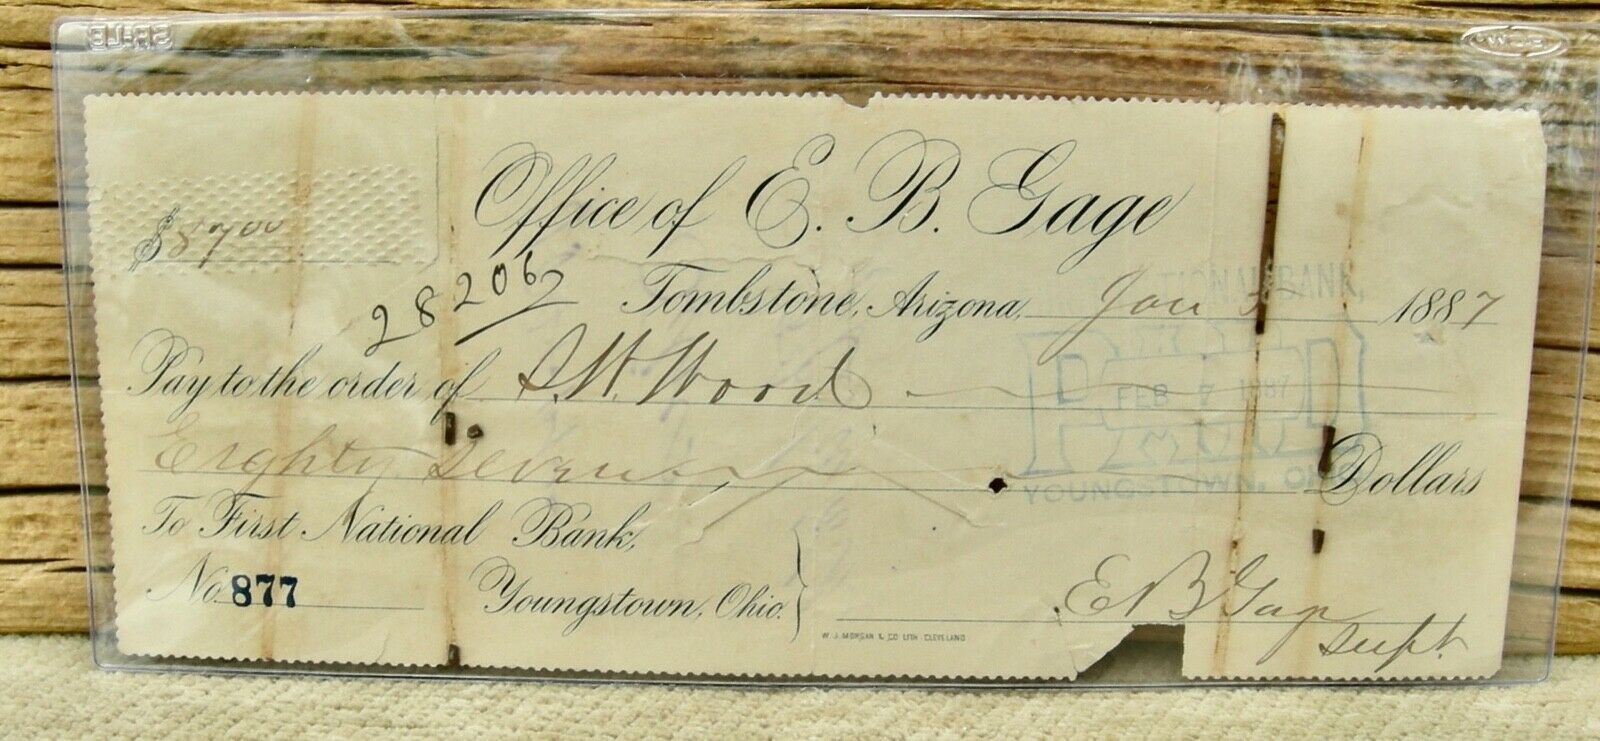 Office of E. B. Gage
$87 00
28206
Tombstone, Arizona, Jan 5 1887
Pay to the order of S. W. Wood
Eighty Seven Dollars
NATIONAL BANK,
PAID
FEB 7 1887
YOUNGSTOWN, OHIO
To First National Bank,
No. 877 Youngstown, Ohio.
E B Gage
Supt.
W. J. MORGAN & CO LITH. CLEVELAND